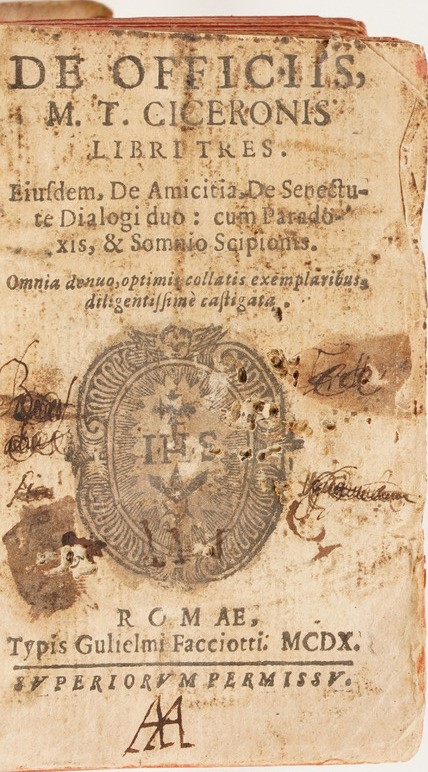 DE OFFICIIS,
M. T. CICERONIS
LIBRI TRES.
Eiuſdem, De Amicitia, De Senectu-
te Dialogi duo: cum Parado-
xis, & Somnio Scipionis.
Omnia denuo, optimis collatis exemplaribus,
diligentiſſimè caſtigata.
IHS
ROMAE,
Typis Gulielmi Facciotti. MCDX.
SVPERIORVM PERMISSV.